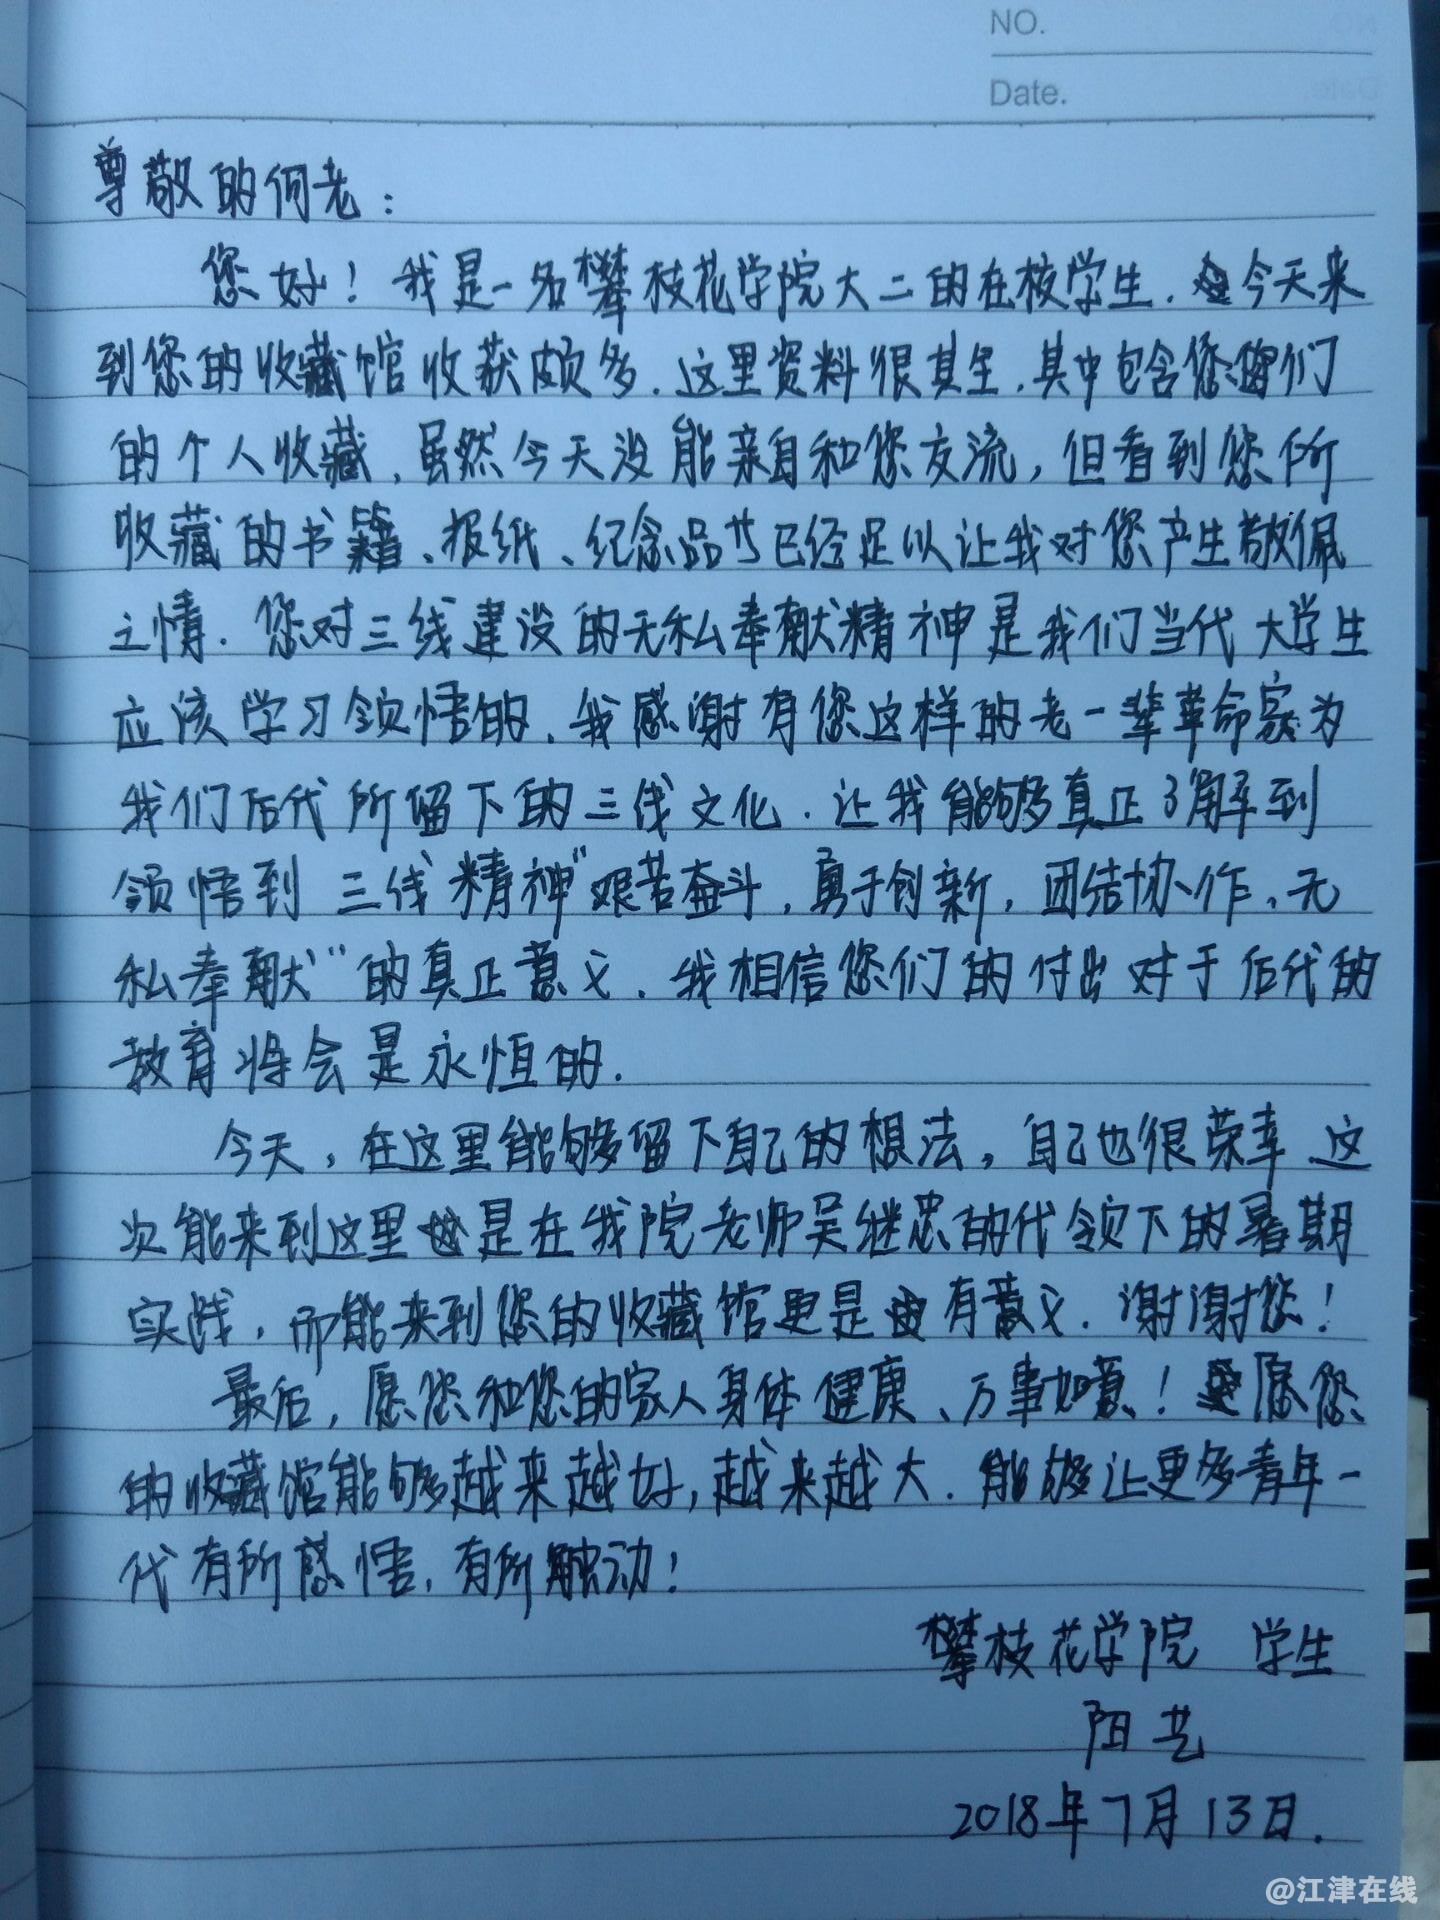 NO.
Date.
尊敬的何老：
您好！我是一名攀枝花学院大二的在校学生.今天来
到您的收藏馆收获颇多.这里资料很其全,其中包含您们
的个人收藏,虽然今天没能亲自和您交流,但看到您所
收藏的书籍、报纸、纪念品 已经足以让我对您产生敬佩
之情.您对三线建设的无私奉献精神是我们当代大学生
应该学习领悟的.我感谢有您这样的老一辈革命家为
我们后代所留下的三线文化.让我能够真正了解到
领悟到三线精神"艰苦奋斗,勇于创新,团结协作,无
私奉献"的真正意义.我相信您们的付出对于后代的
教育将会是永恒的.
今天,在这里能够留下自己的想法,自己也很荣幸 这
次能来到这里也是在我院老师吴继忠的代领下的暑期
实践,而能来到您的收藏馆更是有意义.谢谢您！
最后,愿您和您的家人身体健康、万事如意！愿您
的收藏馆能够越来越好,越来越大.能够让更多青年一
代有所感悟,有所触动！
攀枝花学院 学生
阳艺
2018年7月13日.
@江津在线